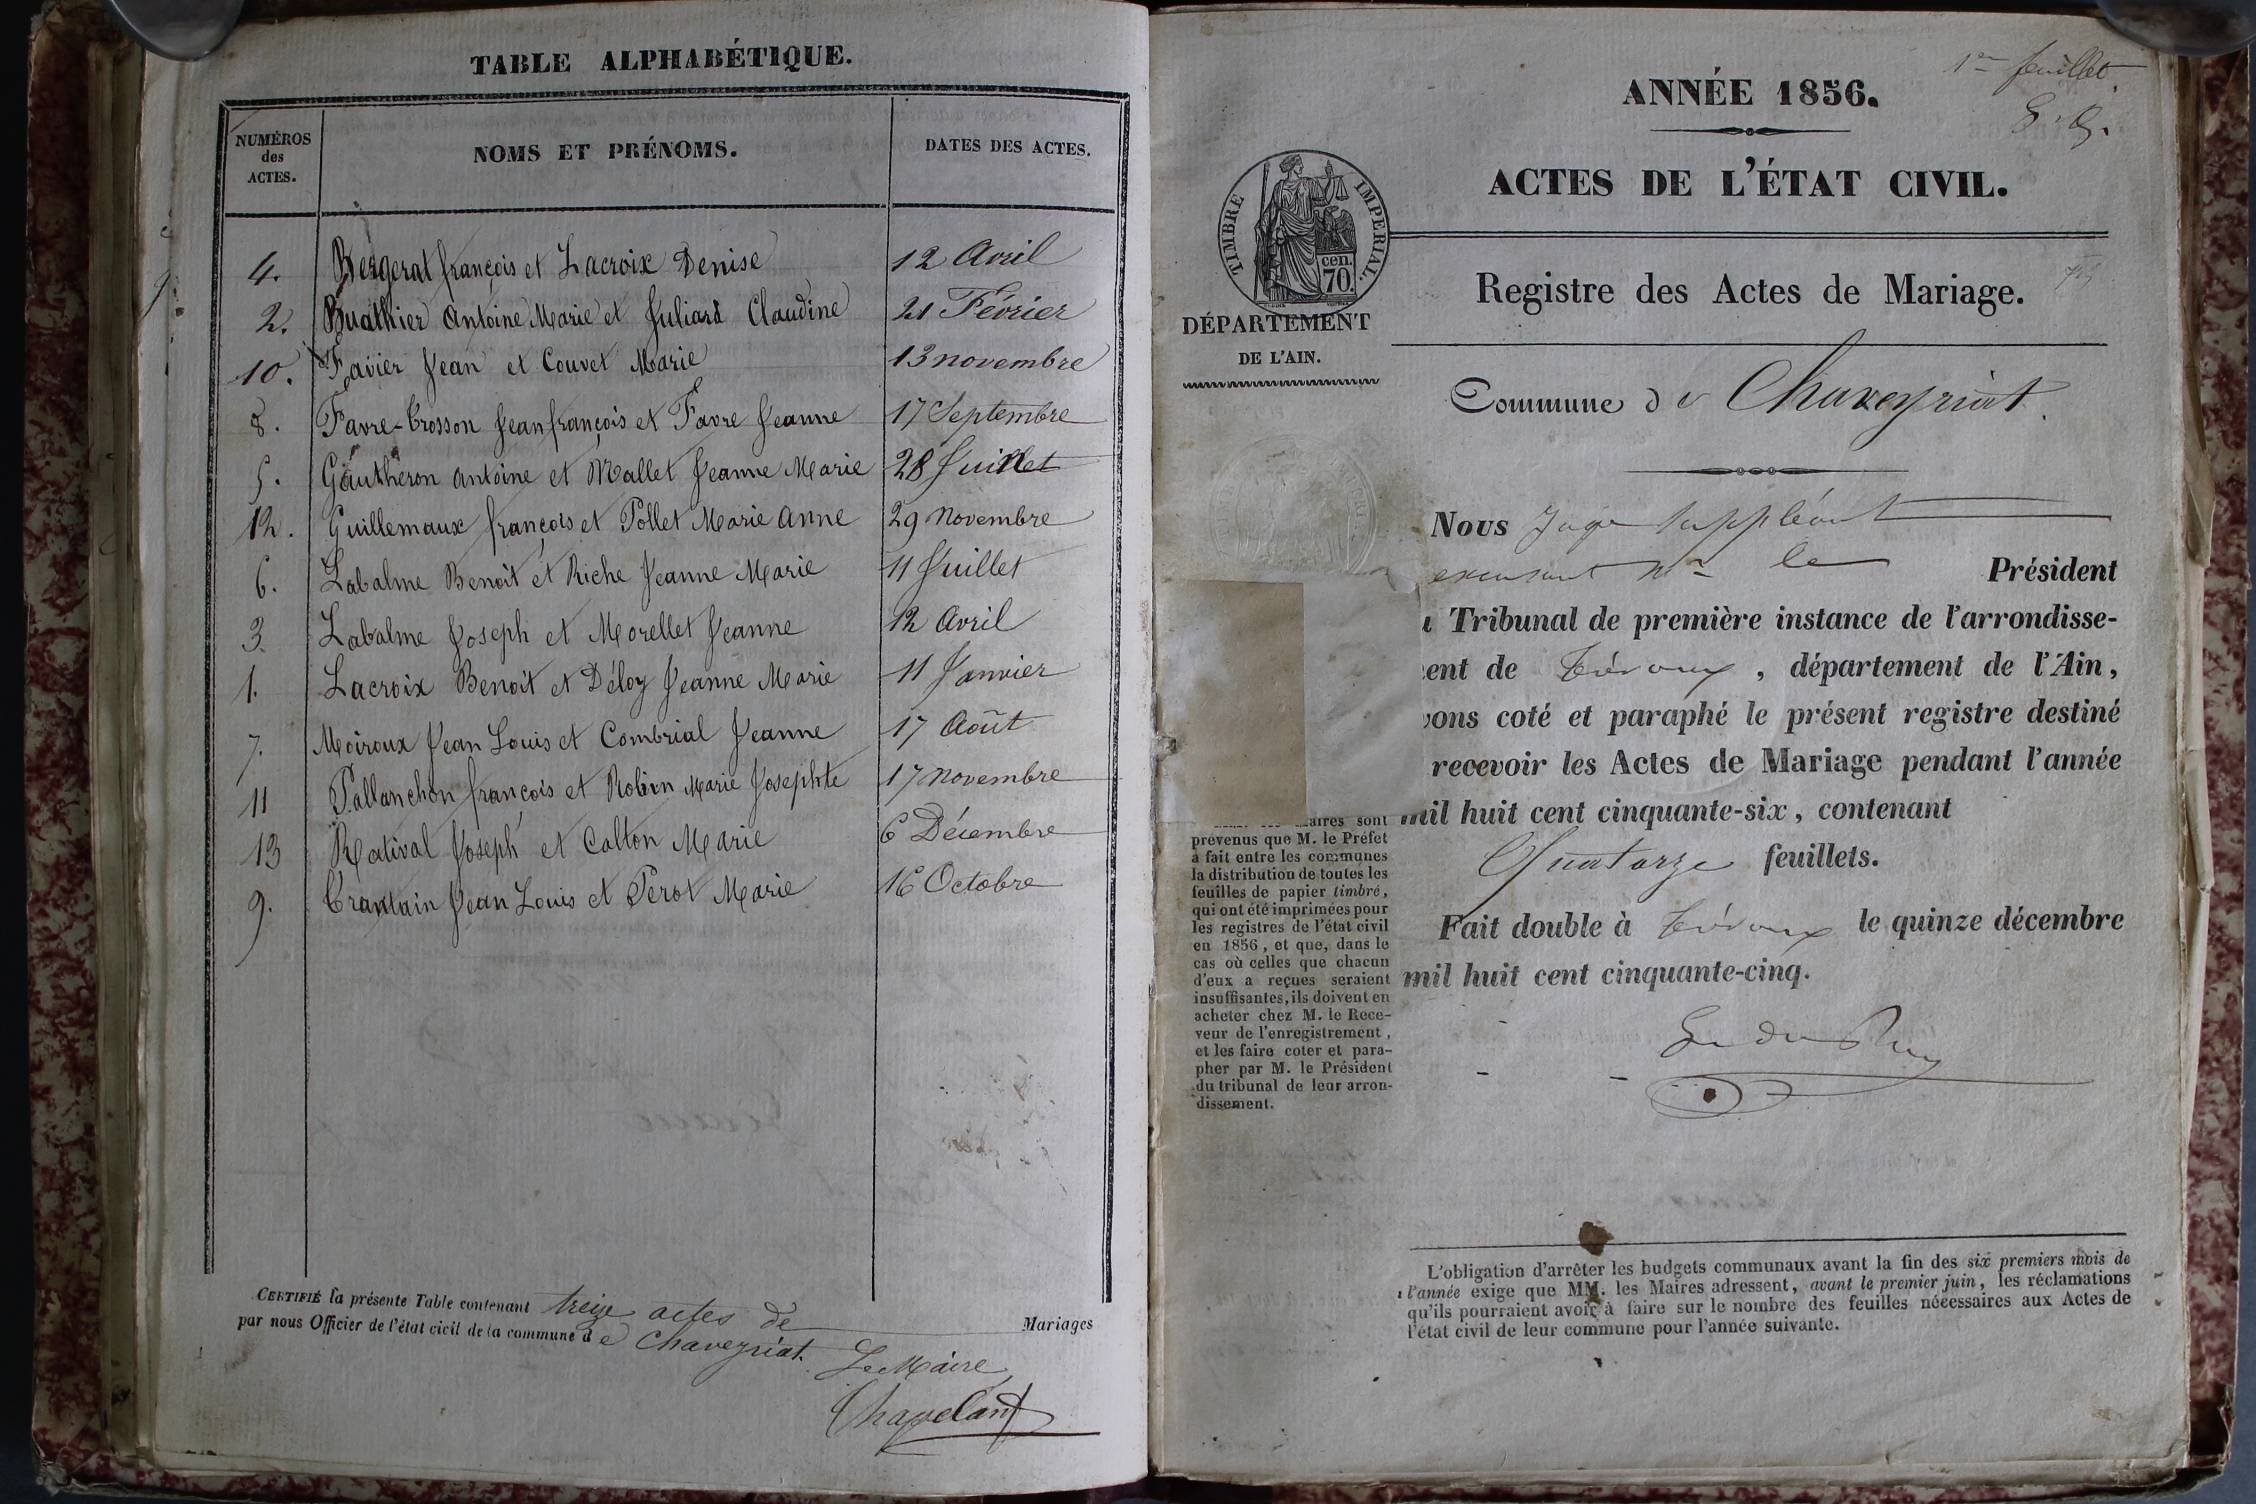 TABLE ALPHABÉTIQUE.
NUMÉROS des ACTES.
NOMS ET PRÉNOMS.
DATES DES ACTES.
4. Bergerat françois et Lacroix Denise 12 Avril
2. Buathier Antoine Marie et Juliard Claudine 21 Février
10. Favier Jean et Couvet Marie 13 novembre
8. Favre-Crosson Jean françois et Favre Jeanne 17 Septembre
5. Gautheron Antoine et Mallet Jeanne Marie 28 Juillet
12. Guillemaux françois et Pollet Marie Anne 29 novembre
6. Labalme Benoît et Riche Jeanne Marie 11 Juillet
3. Labalme Joseph et Morellet Jeanne 12 Avril
1. Lacroix Benoit et Déloy Jeanne Marie 11 Janvier
7. Moiroux Jean Louis et Combrial Jeanne 17 Août
11 Pallanchon françois et Robin Marie Josephte 17 novembre
13 Ratival Joseph et Calton Marie 6 Décembre
9. Jean Louis et Perot Marie 16 Octobre
CERTIFIÉ la présente Table contenant treize actes de Mariages
par nous Officier de l'état civil de la commune de Chaveyriat.
Le Maire,
Chapeland
1er feuillet
ANNÉE 1856.
ACTES DE L'ÉTAT CIVIL.
TIMBRE IMPERIAL.
cen.
70.
DÉPARTEMENT
DE L'AIN.
Registre des Actes de Mariage.
Commune de Chaveyriat.
Nous Juge suppléant
excusant Mr le Président
Tribunal de première instance de l'arrondisse-
ent de Trévoux, département de l'Ain,
vons coté et paraphé le présent registre destiné
recevoir les Actes de Mariage pendant l'année
mil huit cent cinquante-six, contenant
Quatorze feuillets.
Fait double à Trévoux le quinze décembre
mil huit cent cinquante-cinq.
aires sont
prévenus que M. le Préfet
a fait entre les communes
la distribution de toutes les
feuilles de papier timbré,
qui ont été imprimées pour
les registres de l'état civil
en 1856, et que, dans le
cas où celles que chacun
d'eux a reçues seraient
insuffisantes, ils doivent en
acheter chez M. le Rece-
veur de l'enregistrement,
et les faire coter et para-
pher par M. le Président
du tribunal de leur arron-
dissement.
L'obligation d'arrêter les budgets communaux avant la fin des six premiers mois de
l'année exige que MM. les Maires adressent, avant le premier juin, les réclamations
qu'ils pourraient avoir à faire sur le nombre des feuilles nécessaires aux Actes de
l'état civil de leur commune pour l'année suivante.